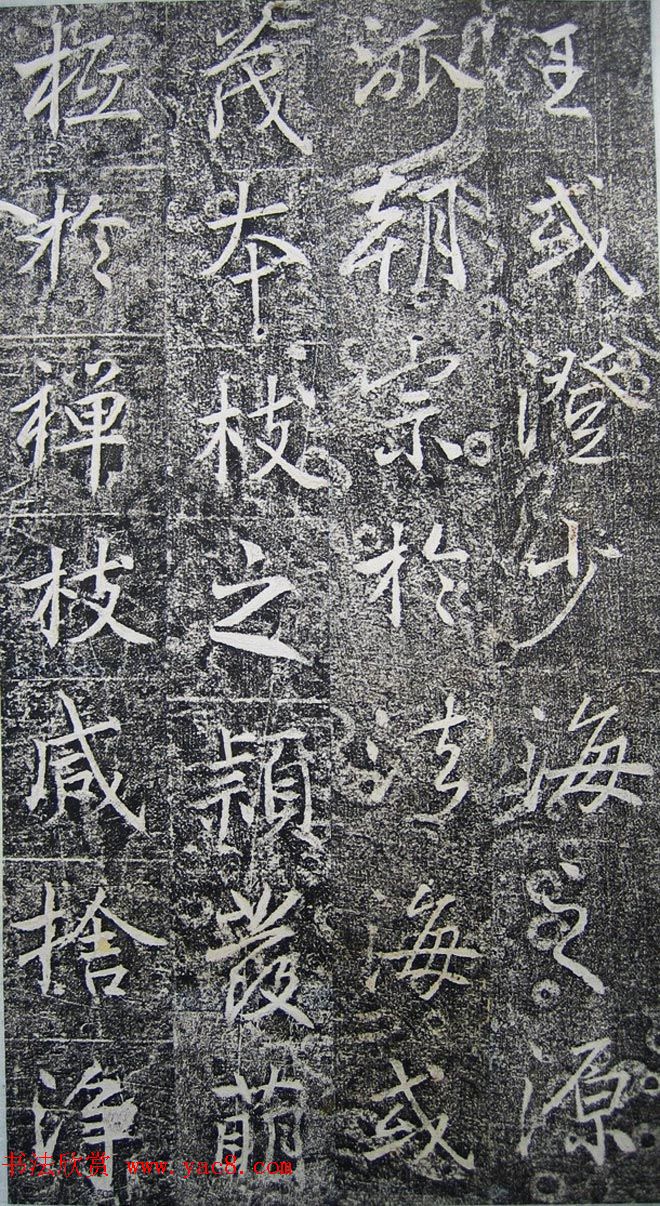 王或澄少海之源
派朝宗於法海或
茂本枝之颖發萌
柢於禪枝咸捨淨
书法欣赏 www.yac8.com